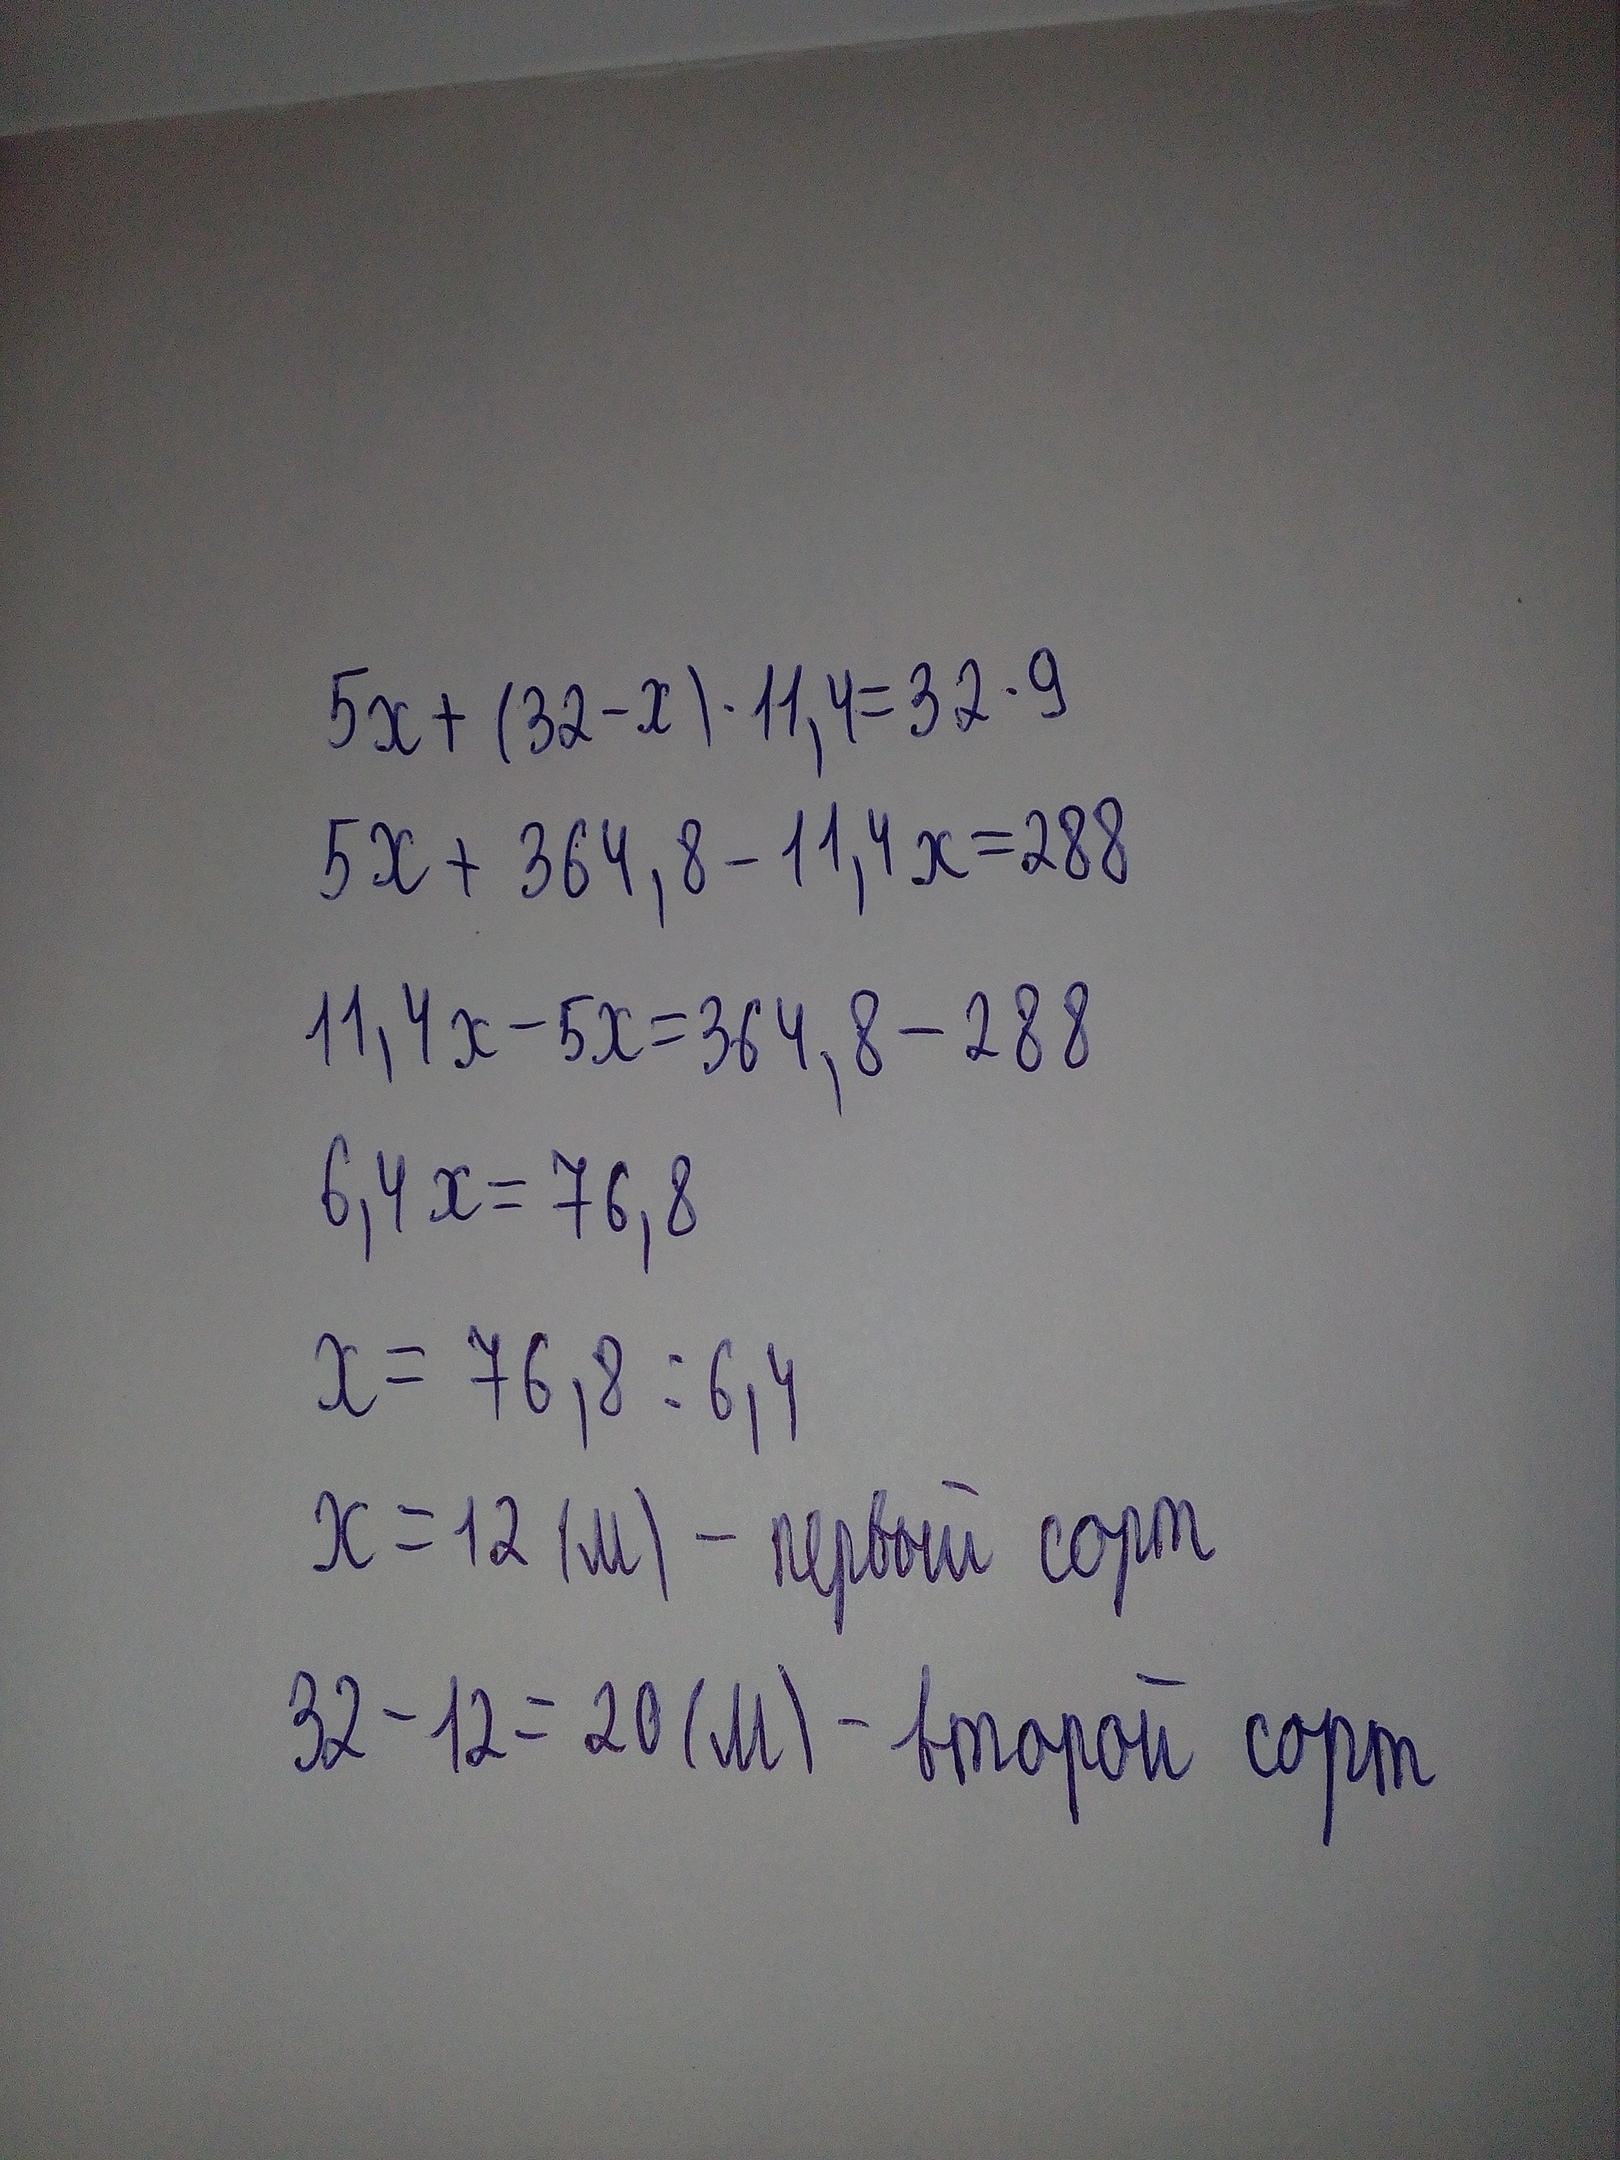 5x+(32-x)·11,4=32·9
5x+364,8-11,4x=288
11,4x-5x=364,8-288
6,4x=76,8
x=76,8:6,4
x=12(м)-первый сорт
32-12=20(м)-второй сорт